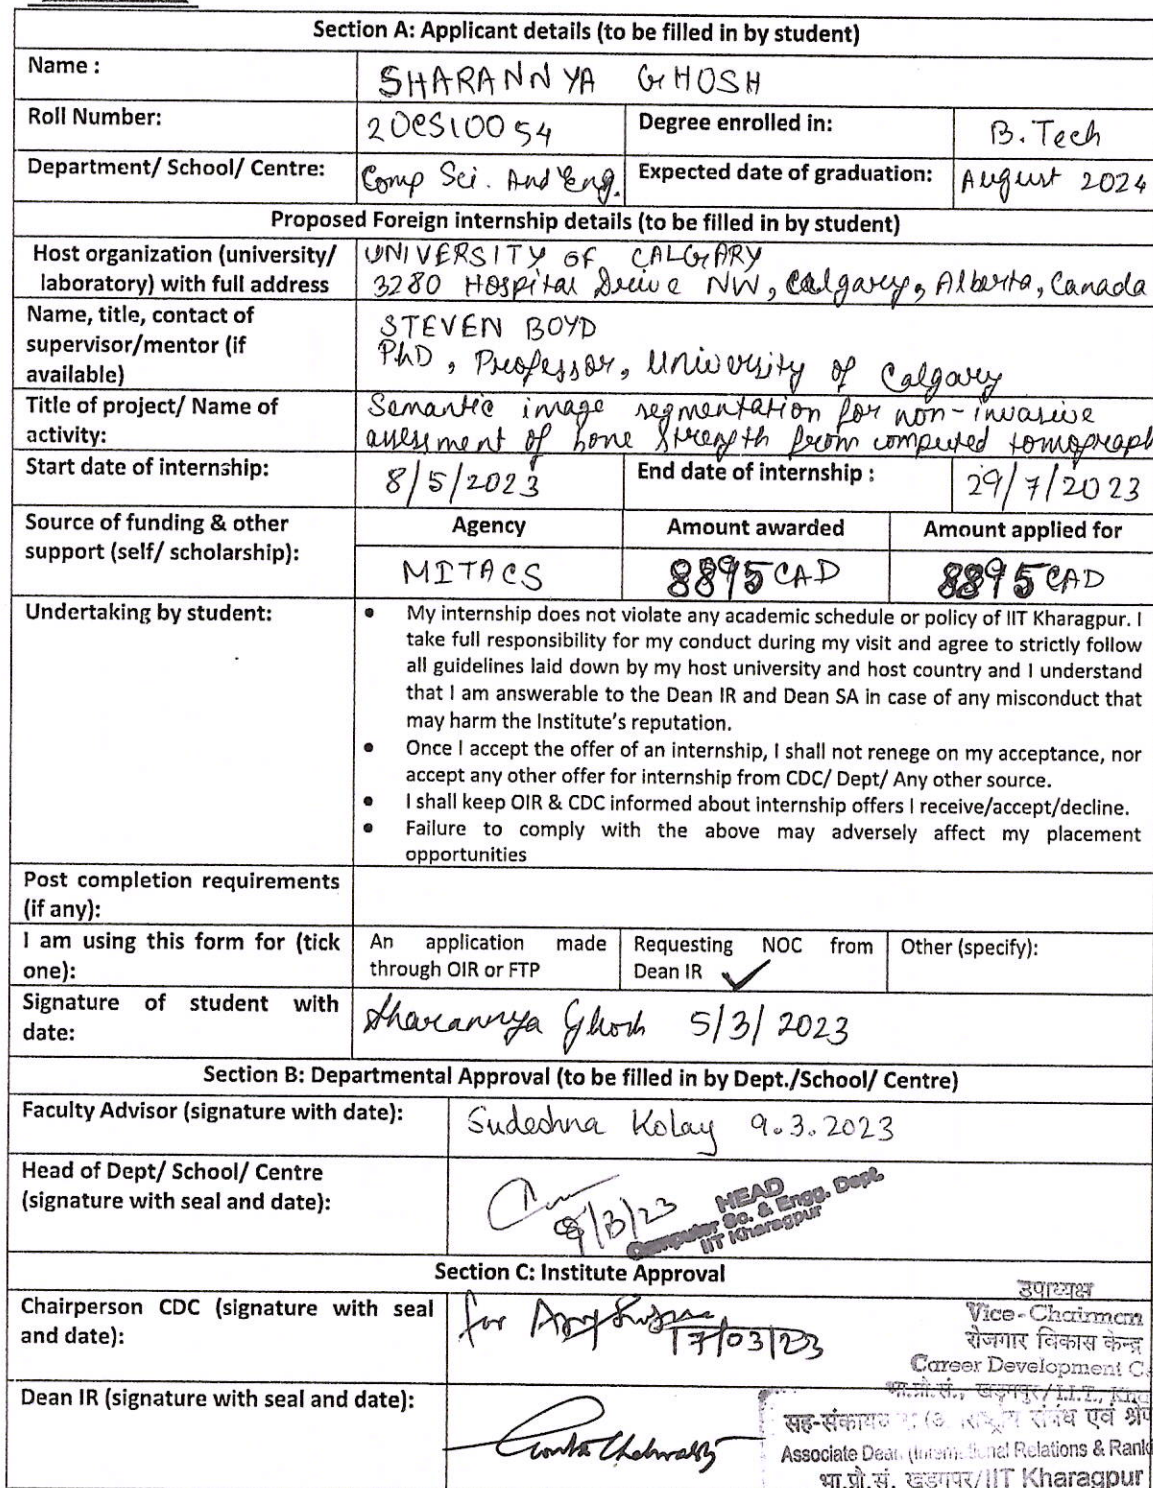 Section A: Applicant details (to be filled in by student)
Name :
SHARANNYA GHOSH
Roll Number:
20CS10054
Degree enrolled in:
B.Tech
Department/ School/ Centre:
Comp Sci. And Eng.
Expected date of graduation:
August 2024
Proposed Foreign internship details (to be filled in by student)
Host organization (university/
laboratory) with full address
UNIVERSITY OF CALGARY
3280 Hospital Drive NW, Calgary, Alberta, Canada
Name, title, contact of
supervisor/mentor (if
available)
STEVEN BOYD
PhD, Professor, University of Calgary
Title of project/ Name of
activity:
Semantic image segmentation for non-invasive
assessment of bone strength from computed tomograph
Start date of internship:
8/5/2023
End date of internship :
29/7/2023
Source of funding & other
support (self/ scholarship):
Agency
Amount awarded
Amount applied for
MITACS
8895 CAD
8895 CAD
Undertaking by student:
• My internship does not violate any academic schedule or policy of IIT Kharagpur. I
take full responsibility for my conduct during my visit and agree to strictly follow
all guidelines laid down by my host university and host country and I understand
that I am answerable to the Dean IR and Dean SA in case of any misconduct that
may harm the Institute's reputation.
• Once I accept the offer of an internship, I shall not renege on my acceptance, nor
accept any other offer for internship from CDC/ Dept/ Any other source.
• I shall keep OIR & CDC informed about internship offers I receive/accept/decline.
• Failure to comply with the above may adversely affect my placement
opportunities
Post completion requirements
(if any):
I am using this form for (tick
one):
An application made
through OIR or FTP
Requesting NOC from
Dean IR ✓
Other (specify):
Signature of student with
date:
Sharannya Ghosh 5/3/2023
Section B: Departmental Approval (to be filled in by Dept./School/ Centre)
Faculty Advisor (signature with date):
Sudeshna Kolay 9.3.2023
Head of Dept/ School/ Centre
(signature with seal and date):
9/3/23
HEAD
Computer Sc. & Engg. Dept.
IIT Kharagpur
Section C: Institute Approval
Chairperson CDC (signature with seal
and date):
for
17/03/23
उपाध्यक्ष
Vice-Chairman
रोजगार विकास केन्द्र
Career Development C
भा.प्रौ.सं., खड़गपुर/ I.I.T.,
Dean IR (signature with seal and date):
संबंध एवं
Associate Dean (International Relations & Rank
भा.प्रौ.सं. खड़गपुर/IIT Kharagpur